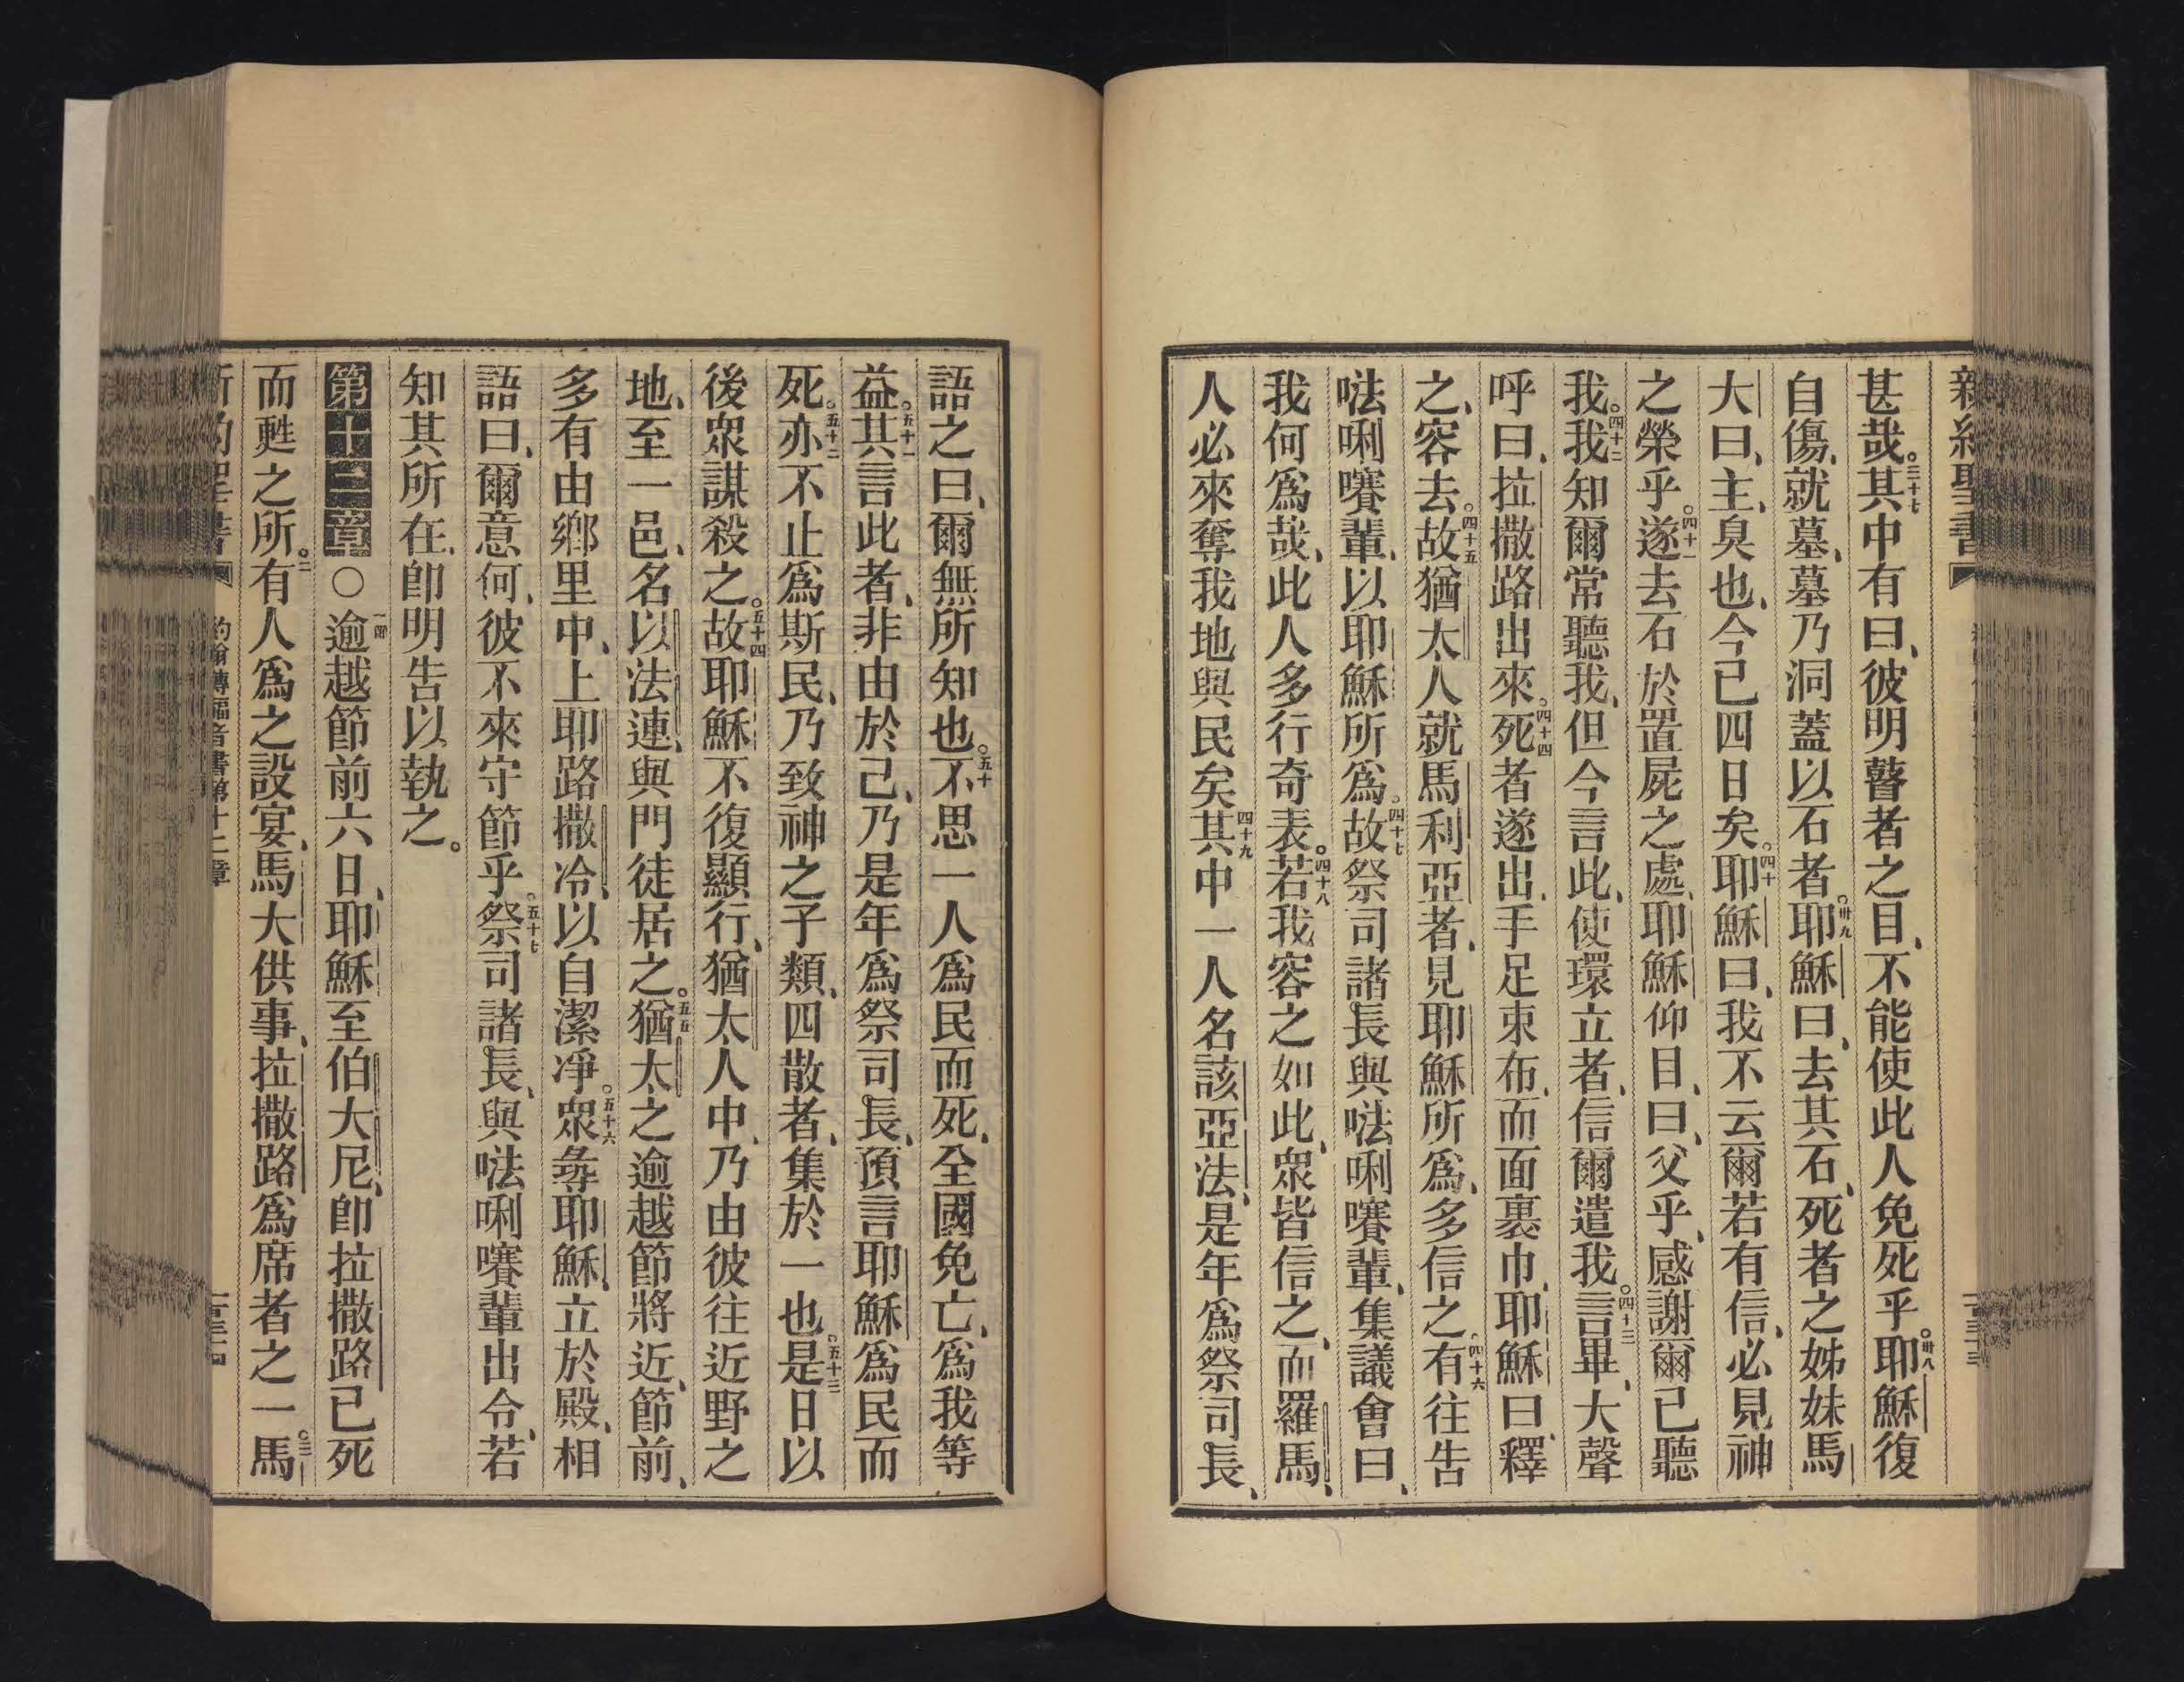 新約聖書
甚哉。三十七其中有曰、彼明瞽者之目、不能使此人免死乎。卅八耶穌復
自傷、就墓、墓乃洞蓋以石者。卅九耶穌曰、去其石、死者之姊妹馬
大曰、主、臭也、今已四日矣。四十耶穌曰、我不云爾若有信、必見神
之榮乎。四十一遂去石於置屍之處、耶穌仰目、曰、父乎、感謝爾已聽
我。四十二我知爾常聽我、但今言此、使環立者、信爾遣我。四十三言畢、大聲
呼曰、拉撒路出來。四十四死者遂出、手足束布、而面裹巾、耶穌曰、釋
之、容去。四十五故猶太人就馬利亞者、見耶穌所爲、多信之。四十六有往告
𠵽唎㘔輩、以耶穌所爲。四十七故祭司諸長與𠵽唎㘔輩、集議會曰、
我何爲哉、此人多行奇表。四十八若我容之如此、衆皆信之、而羅馬
人必來奪我地與民矣四十九其中一人名該亞法、是年爲祭司長、
語之曰、爾無所知也。五十不思一人爲民而死、全國免亡、爲我等
益。五十一其言此者、非由於己、乃是年爲祭司長、預言耶穌爲民而
死。五十二亦不止爲斯民、乃致神之子類、四散者、集於一也。五十三是日以
後衆謀殺之。五十四故耶穌不復顯行、猶太人中、乃由彼往近野之
地、至一邑、名以法連、與門徒居之。五五猶太之逾越節將近、節前、
多有由鄉里中、上耶路撒冷、以自潔凈。五十六衆尋耶穌、立於殿、相
語曰、爾意何、彼不來守節乎。五十七祭司諸長、與𠵽唎㘔輩出令、若
知其所在、卽明告以執之。
第十二章○一節逾越節前六日、耶穌至伯大尼、卽拉撒路已死
而甦之所。二有人爲之設宴、馬大供事、拉撒路爲席者之一。三馬
新約聖書 約翰傳福音書第十二章 一百三十四